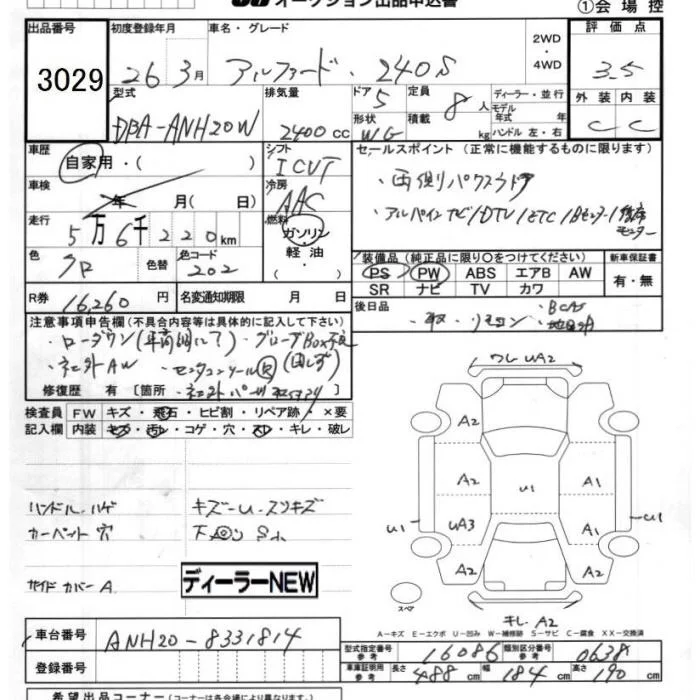 オークション出品申込書
①会場控
出品番号 初度登録年月 車名・グレード 2WD・4WD 評価点
3029 26 3月 アルファード・240S 3.5
型式 排気量 ドア 5 定員 8人 ディーラー・並行 外装 内装
DBA-ANH20W 2400cc 形状 WG 積載 kg モデル年式 年 ハンドル 左・右 C C
車歴 自家用・( ) シフト ICVT セールスポイント (正常に機能するものに限ります)
車検 年 月(日) 冷房 AAC ・両側パワースライドドア
走行 5万6千220km 燃料 ガソリン・軽油・( ) ・アルパインナビ/DTV/ETC/Bモニター/後席モニター
色 クロ 色替 色コード 202
装備品 (純正品に限り○をつけてください) 新車保証書
PS PW ABS エアB AW 有・無
SR ナビ TV カワ
R券 16,260円 名変通知期限 月 日 後日品
・取・リモコン ・BCAS
注意事項申告欄 (不具合内容等は具体的に記入して下さい)
・ローダウン ・グローブBox不良
・社外AW
修復歴 有 [箇所
検査員 FW キズ・飛石・ヒビ割・リペア跡・×要
記入欄 内装 キズ・汚レ・コゲ・穴・スレ・キレ・破レ
ワレ UA2
A2
A2 U1 A1
U1 UA3 A1 U1
A2 A2
スペア
キレ A2
ハンドル ハゲ キズーU スリキズ
カーペント穴
サイドカバー A
ディーラーNEW
A-キズ E-エクボ U-凹み W-補修跡 S-サビ C-腐食 XX-交換済
車台番号 ANH20-8331814
型式指定番号 参考 16086 類別区分番号 参考
登録番号 車庫証明用 参考 長さ 488cm 幅 184cm 高さ 190cm
希望出品コーナー